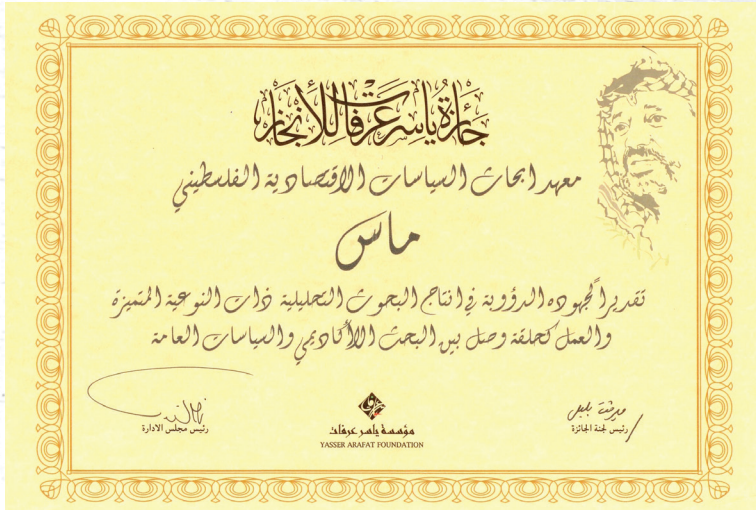 جائزة ياسر عرفات للأنجاز
معهد ابحاث السياسات الاقتصادية الفلسطيني
ماس
تقديراً لجهوده الدؤوبة في انتاج البحوث التحليلية ذات النوعية المتميزة
والعمل كحلقة وصل بين البحث الأكاديمي والسياسات العامة
رئيس لجنة الجائزة
مؤسسة ياسر عرفات
YASSER ARAFAT FOUNDATION
رئيس مجلس الادارة